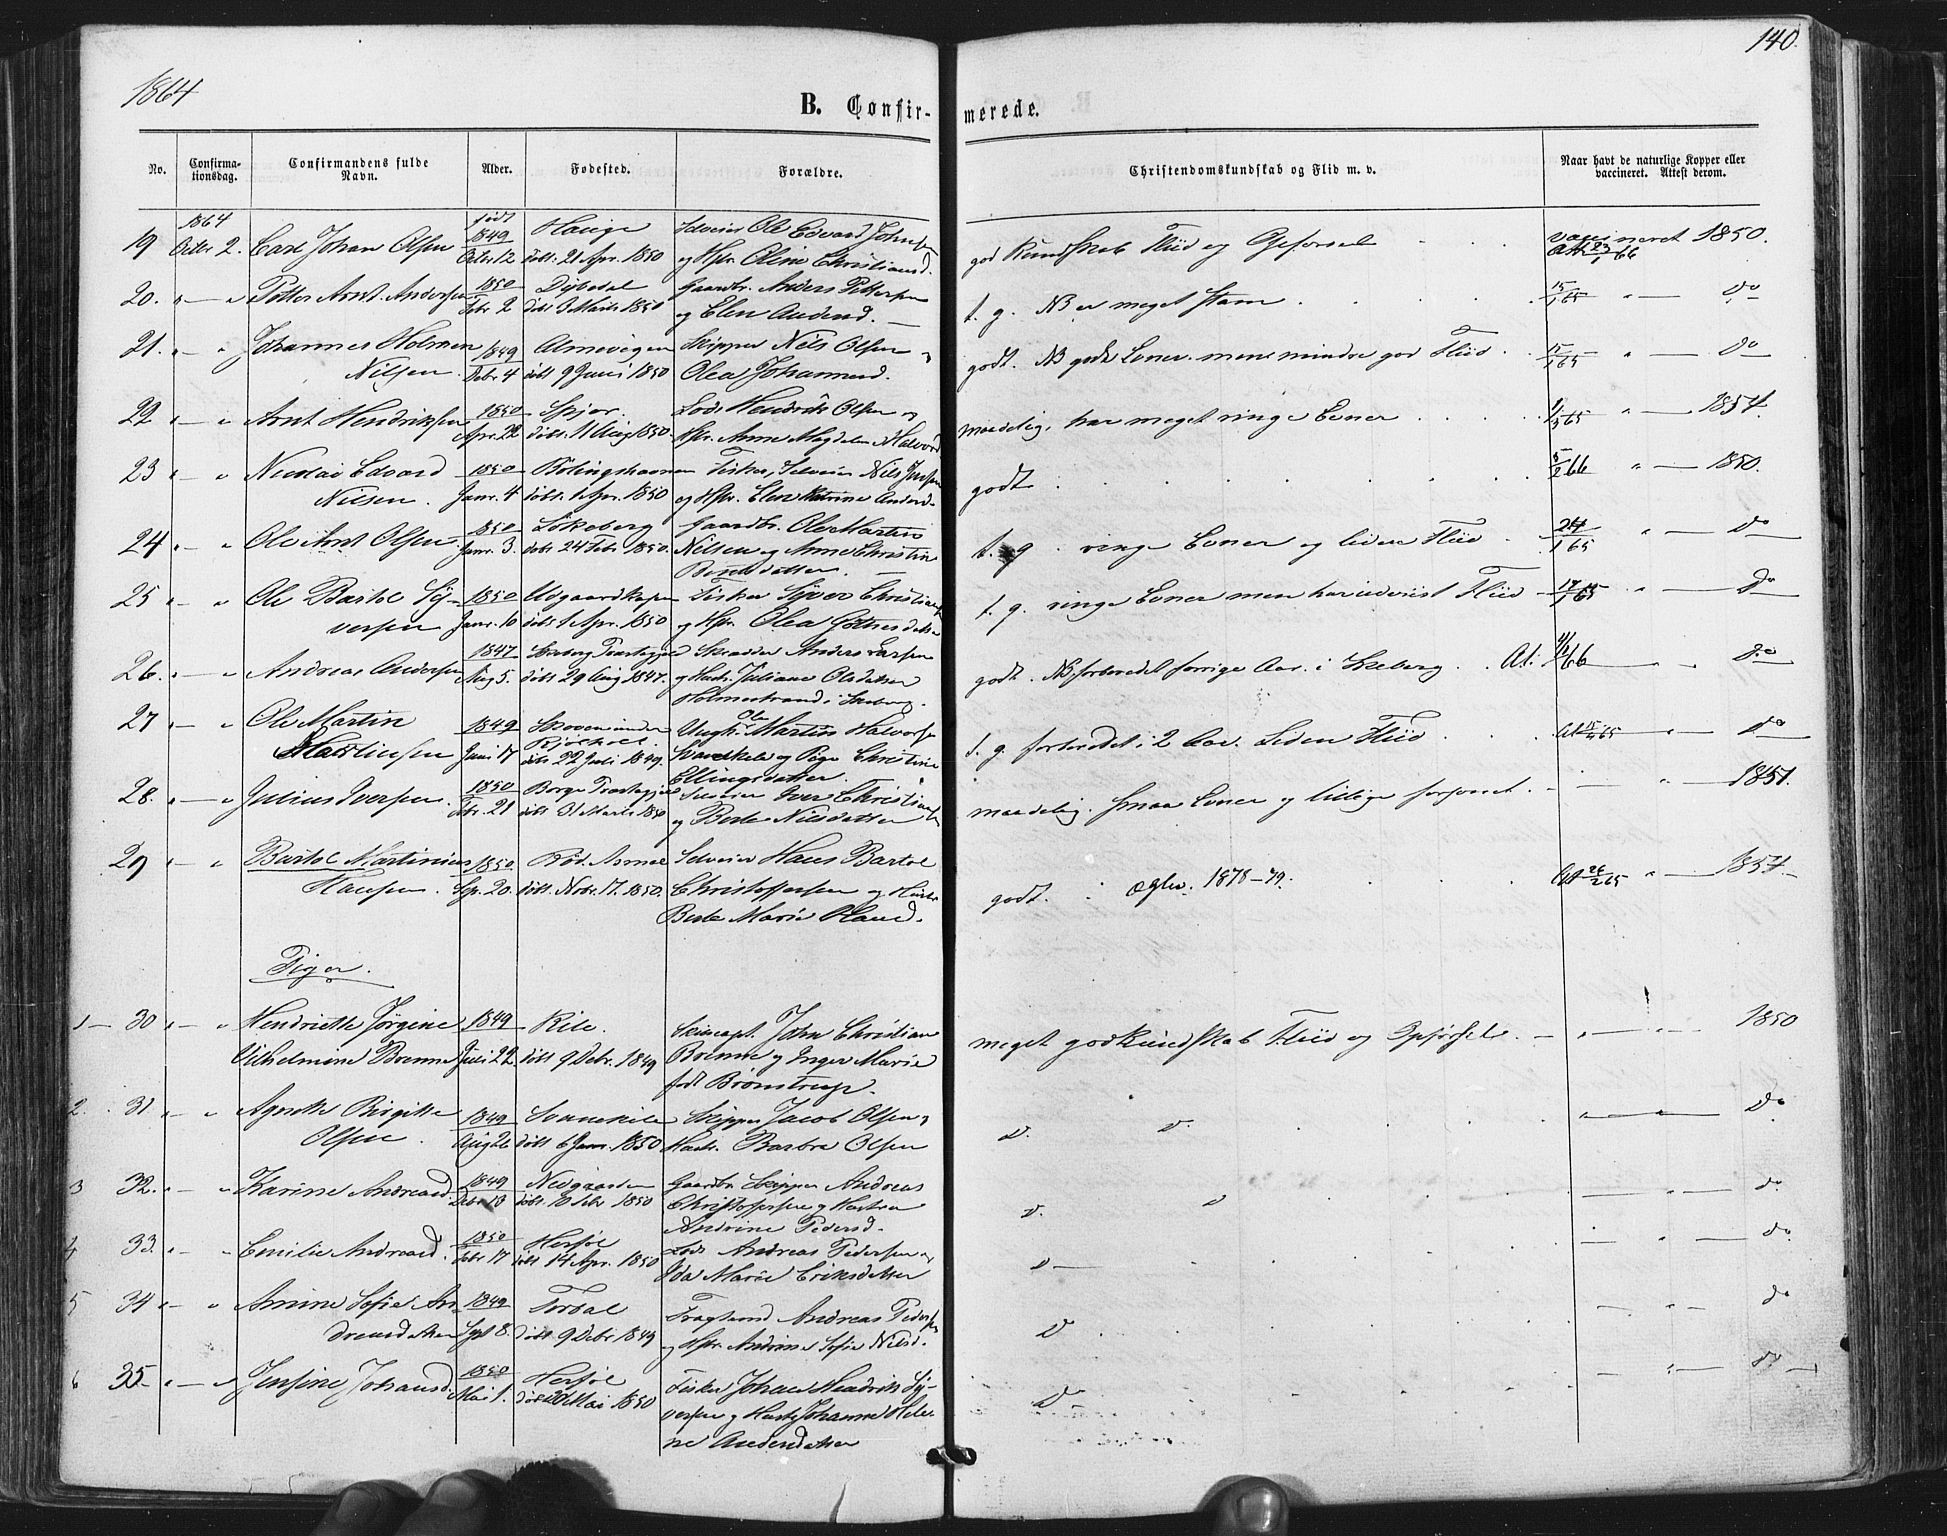 1864
140.
B. Confir-
merede.
No.
Confirma-
tionsdag.
Confirmandens fulde
Navn.
Alder.
Fødested.
Forældre.
Christendomskundskab og Flid m. v.
Naar havt de naturlige Kopper eller
vaccineret. Attest derom.
1864 født
19 Octbr 2. Carl Johan Olsen 1849 Octbr 12 Hauge døbt 21 Apr. 1850 Selveier Ole Edvard Johnsen
og Hstr. Oline Christiansd. god Kundskab Flid og Opførsel vaccineret 1850.
Att 23/1 66
20. " — " Petter Arnt Andersen 1850 Febr. 2 Dybedal døbt 3 Marts 1850 Gaardbr. Anders Pettersen
og Elen Andersd. — t. g. NB er meget stam 15/1 65 " — do
21. " — " Johannes Holmen
Nilsen 1849 Debr 4 Almevigen døbt 9 Juni 1850 Skipper Nils Olsen og
Olea Johannesd. godt. NB gode Evner. mens mindre god Flid 15/1 65 " — do
22 " — " Arnt Hendriksen 1850 Apr. 22 Skjær. døbt 11 Aug 1850. Lods Hendrik Olsen og
Hstr. Anne Magdalen Halvord maadelig, har meget ringe Evner 1/5 65 " — 1854.
23 " — " Nicolai Edvard
Nilsen. 1850 Janr. 4 døbt 1 Apr. 1850 Fisker, Selveier Nils Jensen
og Hstr. Elen Katrine Andersd. godt 5/2 66 " — 1850.
24 " — " Ole Arnt Olsen 1850 Janr. 3. Løkeberg døbt 24 Febr 1850. Gaardbr. Ole Martin
Nilsen og Anne Christine
Berthsdatter. — t. g. ringe Evner og liden Flid 24/1 65 " — do
25 " — " Ole Bartol Sy-
versen 1850 Janr. 10 Udgaardkasen døbt 1 Apr. 1850 Fisker Syver Christians
og Hstr. Olea t. g. ringe Evner men har udvist Flid 17/1 65 " — do
26. " — " Andreas Andersen 1847 Aug 5. Skeberg Præstegjeld døbt 29 Aug 1847. Skrædder Anders Larsen
og Hustr. Juliane Olsdatter
Holmestrand i Skeberg. godt. NB forberedet forrige Aar i Skeberg. At. 66 do
27 " — " Ole Martin
Martinsen 1849 Juni 17 døbt 22 Juli 1849. Ungk. Ole Martin Halvorsen
Svanekil og Pige Christine
Ellingsdatter. t. g. forberedet i 2 Aar. Liden Flid At 15/4 65 " — do
28. " — " Julius Iversen. 1850 Febr. 21 Borge Præstegjeld døbt 31 Marts 1850 Selveier Iver Christians
og Berte Nilsdatter maadelig. smaa Evner og tillige forsømt. — " 1851.
29 " — " Bartol Martinius
Hansen. 1850. Sep. 20. Rød. Asmal døbt. Nobr. 17. 1850. Selveier Hans Bartol
Christoffersen og Hustr.
Berte Marie Hansd. godt. 1878-79. At 26/2 65 " — 1854.
Piger.
1 — 30 " — " Hendriette Jørgine
Vilhelmine Brenne 1849 Juni 22 Kile. døbt 9 Debr. 1849 Skibscapt. John Christian
Brenne og Inger Marie
født Brønstrup. meget god Kundskab Flid og Opførsel. — " — " 1850
2. 31 " — " Agnethe Birgitte
Olsen. 1849 Aug 26 Svanekile døbt 6 Janr. 1850 Skipper Jacob Olsen og
Hustr. Barbra Olsen D. D. " — " Do
3 32. " — " Karine Andreasd 1849 Debr 13 Nedgaarden døbt 10 Febr 1850 Gaardbr Skipper Andreas
Christoffersen og Hustru
Andrine Pedersd. D. D " — " do
4 33. " — " Emilie Andreasd. 1850 Febr 17 Herføl døbt 14 Apr. 1850 Lods Andreas Pedersen og
Ida Marie Eriksdatter D — " " do
5 34 " — " Amine Sofie An-
dreasdatter 1849 Sept 8. Torbal døbt 9 Debr 1849 Fragtemd Andreas Pedersen
og Hstr. Andrine Sofie Nilsd. D — " do
6 35 " — " Jensine Johansd. 1850 Mai 1. Herføl døbt 20 Mai 1850 Fisker Johan Hendrik Sy-
versen og Hustr. Johanne Hele-
ne Andersdatter Do — " do